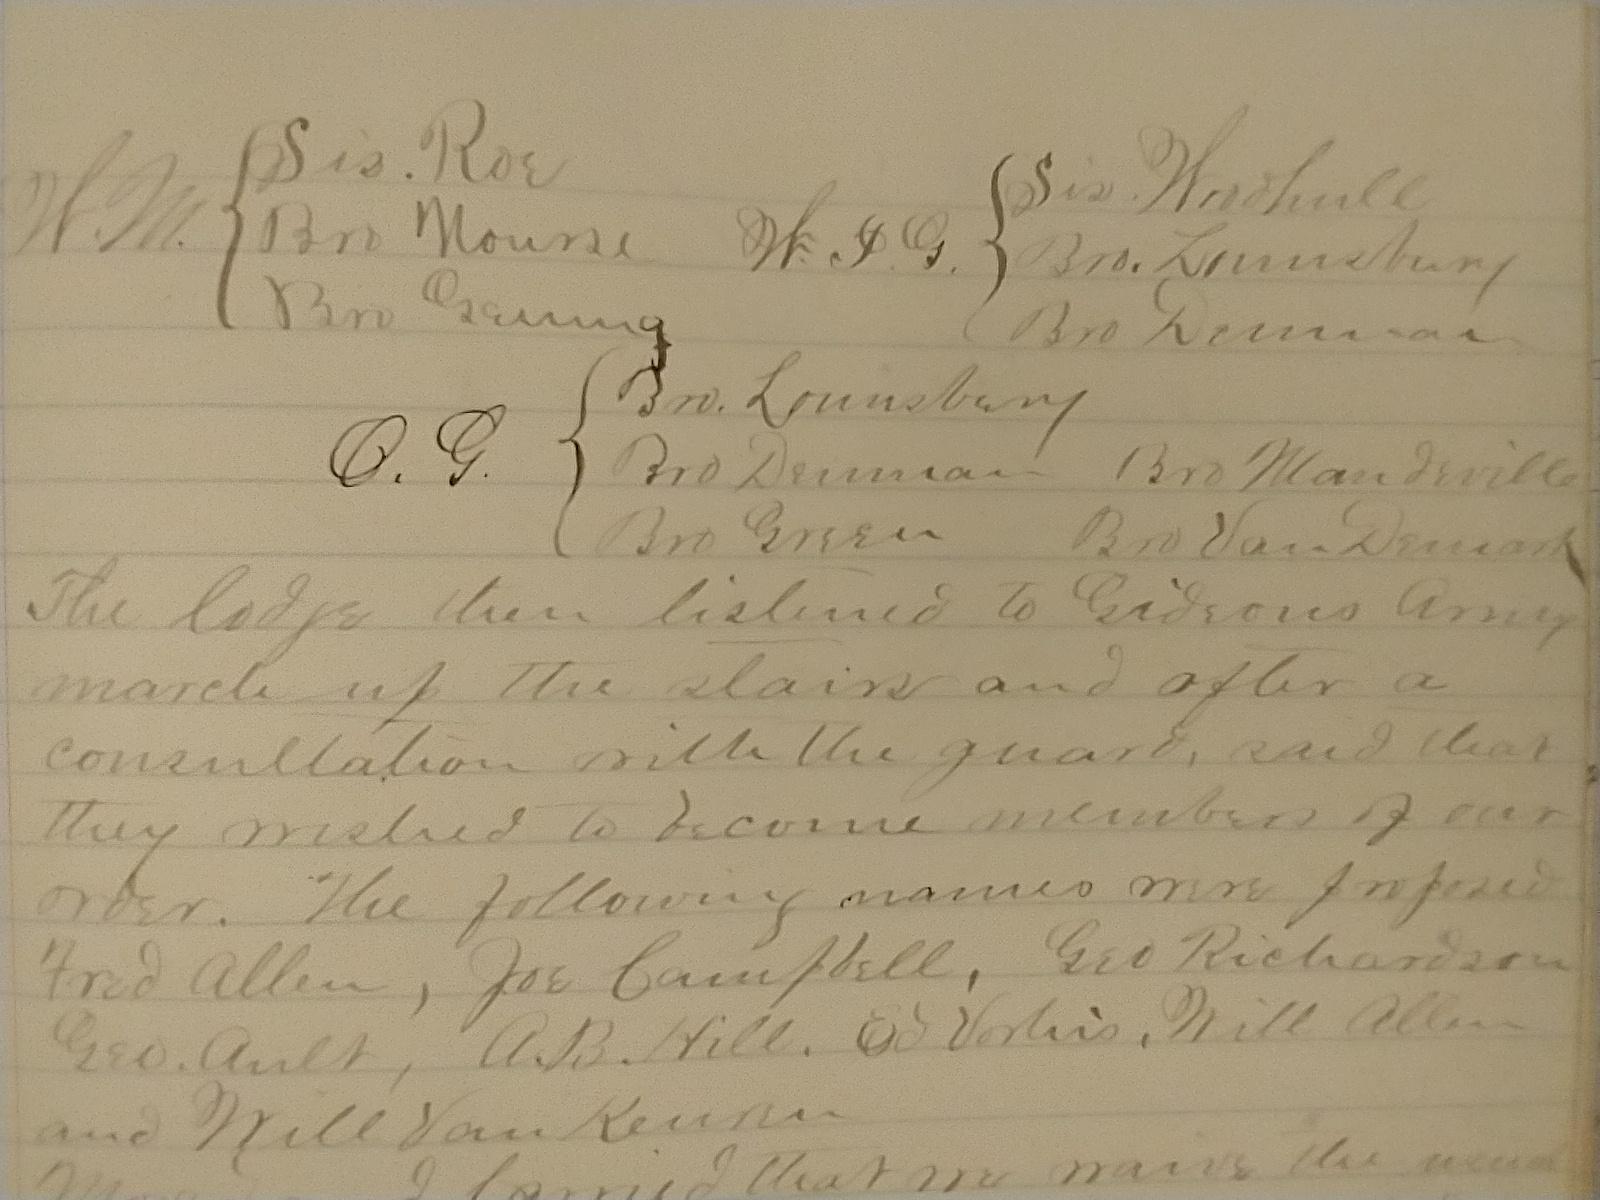 W.M. { Sis. Roe
Bro Nourse
Bro Genung
W. I. G. { Sis. Woodhull
Bro. Lounsbury
Bro Denman
O. G. { Bro. Lounsbury
Bro Denman Bro Mandeville
Bro Green Bro Van Demark
The lodge then listened to Gideons Army
march up the stairs and after a
consultation with the guard, said that
they wished to become members of our
order. The following names were proposed
Fred Allen, Joe Campbell, Geo Richardson
Geo. Ault, A.B. Hill. Ed Vorhis, Will Allen
and Will Van Keuren
carried that we waive the usual